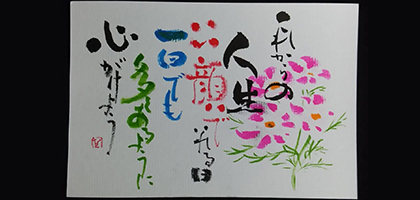 これからの
人生
笑顔で
いれる日
一日でも
多くあるように
心がけよう